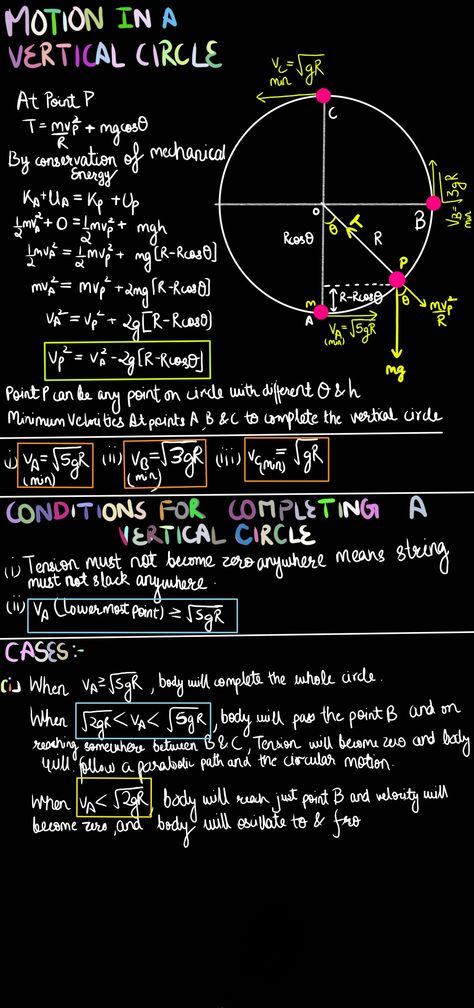 MOTION IN A
VERTICAL CIRCLE
At Point P
T = mv_P²/R + mgcosθ
By conservation of mechanical
Energy
K_A + U_A = K_P + U_P
1/2 mv_A² + 0 = 1/2 mv_P² + mgh
1/2 mv_A² = 1/2 mv_P² + mg[R-Rcosθ]
mv_A² = mv_P² + 2mg[R-Rcosθ]
v_A² = v_P² + 2g[R-Rcosθ]
v_P² = v_A² - 2g[R-Rcosθ]
v_C = √gR
min
C
O
θ
T
R
Rcosθ
B
V_B = √3gR
min
P
θ
R-Rcosθ
M
A
V_A = √5gR
(min)
mv_P²/R
mg
Point P can be any point on circle with different θ & h
Minimum Velocities At points A, B & C to complete the vertical circle
i) v_A = √5gR (ii) v_B = √3gR (iii) v_C(min) = √gR
(min) (min)
CONDITIONS FOR COMPLETING A
VERTICAL CIRCLE
(i) Tension must not become zero anywhere means string
must not slack anywhere.
(ii) V_A (lowermost point) ≥ √5gR
CASES:-
(i) When V_A ≥ √5gR, body will complete the whole circle.
When √2gR < V_A < √5gR, body will pass the point B and on
reaching somewhere between B & C, Tension will become zero and body
will follow a parabolic path and the circular motion.
When V_A < √2gR, body will reah just point B and velocity will
become zero, and body will osillate to & fro